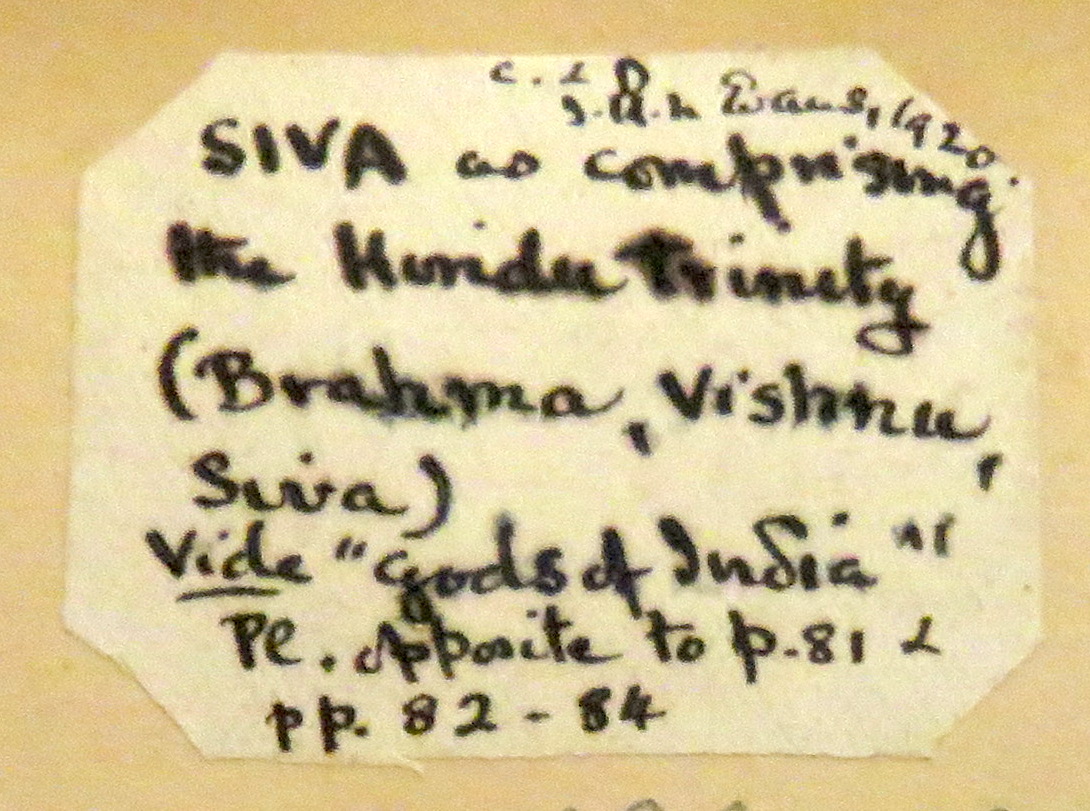 Evans, 1920.
SIVA as comprising
the Hindu Trinity
(Brahma, Vishnu,
Siva)
Vide "Gods of India"
Pl. opposite to p. 81 &
pp. 82 - 84